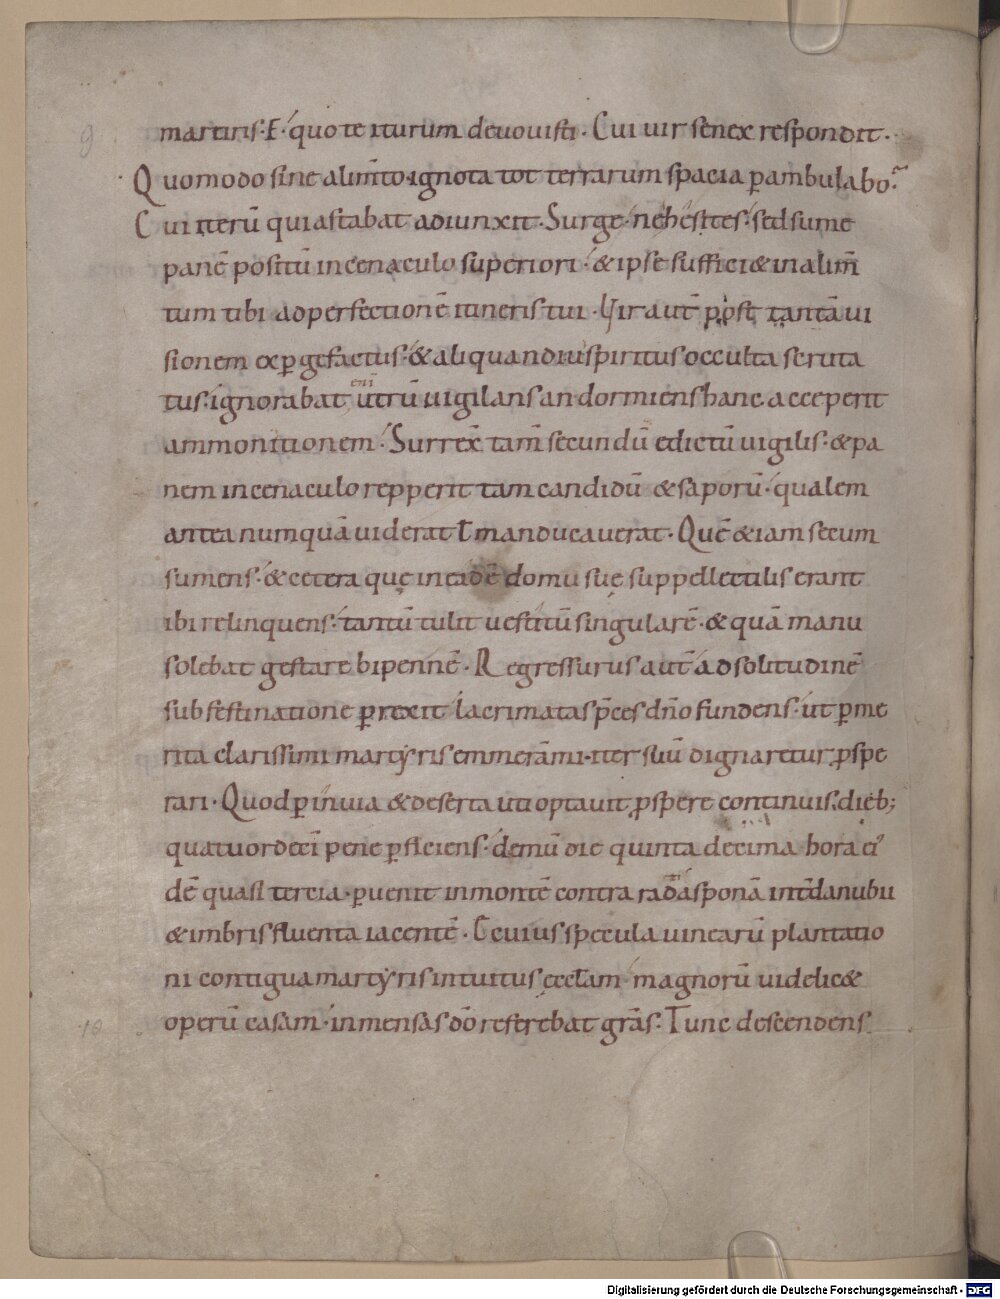 martiris·E·quo te iturum devovisti· Cui vir senex respondit·
Quomodo sine alim̄to ignota tot terrarum spacia ꝑambulabo?
Cui iterū qui astabat adiunxit· Surge· ne hesites· sed sume
panē positū in cenaculo superiori· & ipse suffici& in alim̄
tum tibi ad perfectionē itineris tui· Vir aut̄ post tantā vi
sionem exꝑgefactus· & aliquandiu spiritus occulta scruta
tus· ignorabat enī utrū vigilans an dormiens hanc acceperit
ammonitionem· Surrex̄ tam̄ secundū edictū vigilis· & pa
nem in cenaculo repperit tam candidū & saporū· qualem
antea numquā viderat ł manducaverat· Quē &iam secum
sumens· & cetera quę in eadē domu suę suppellectilis erant
ibi relinquens· tantū tulit vestitū singularē· & quā manu
solebat gestare bipennē· Regressurus aut̄ ad solitudinē
sub festinatione ꝑrexit lacrimatas p̄ces dn̄o fundens· ut ꝑ me
rita clarissimi martẏris emmerāmi· iter suū dignaretur ꝓspe
rari· Quod ꝑ invia & deserta uti optavit ꝓspere continuis· dieb;
quatuordecī pene ꝑficiens· demū die quinta decima· hora ei᾽
dē quasi tercia· ꝑvenit in montē contra radasponā int̄ danubii
& imbris fluenta iacentē· Ce cuius specula vinearū plantatio
ni contigua martẏris intuitus ęccłam· magnorū videlic&
operū casam· inmensas dō referebat grās· Tunc descendens
9
10
Digitalisierung gefördert durch die Deutsche Forschungsgemeinschaft - DFG